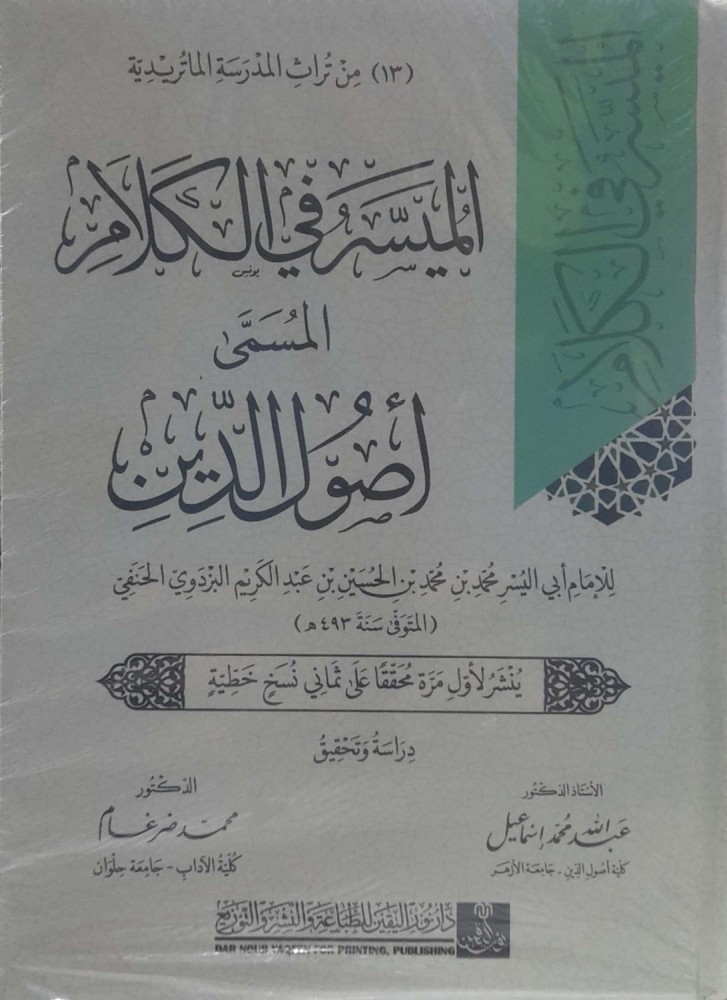 (١٣) مِنْ تُرَاثِ المَدْرَسَةِ المَاتُرِيْدِيَّة
المُيَسَّر في الكَلَامِ
يونس
المُسَمَّىٰ
أُصُولُ الدِّينِ
المُيَسَّر في الكَلَامِ
لِلإِمَامِ أَبِي اليُسْرِ مُحَمَّدِ بْنِ مُحَمَّدِ بْنِ الحُسَيْنِ بْنِ عَبْدِ الكَرِيْمِ البَزْدَوِيِّ الحَنَفِيِّ
(المُتَوَفَّىٰ سَنَةَ ٤٩٣ هـ)
يُنْشَرُ لأَوَّلِ مَرَّةٍ مُحَقَّقًا عَلَىٰ ثَمَانِي نُسَخٍ خَطِّيَّةٍ
دِرَاسَةُ وَتَحْقِيقُ
الأُسْتَاذ الدُّكْتُور
عَبدالله مُحَمَّد إسْمَاعِيل
كُلِّيَّة أُصُولِ الدِّينِ - جَامِعَة الأَزْهَر
الدُّكْتُور
محمّد ضرغام
كُلِّيَّةُ الآدَابِ - جَامِعَة حِلْوَان
دَارُ نُورِ اليَقِين لِلطِّبَاعَةِ وَالنَّشْرِ وَالتَّوْزِيع
DAR NOUR YAQEEN FOR PRINTING, PUBLISHING